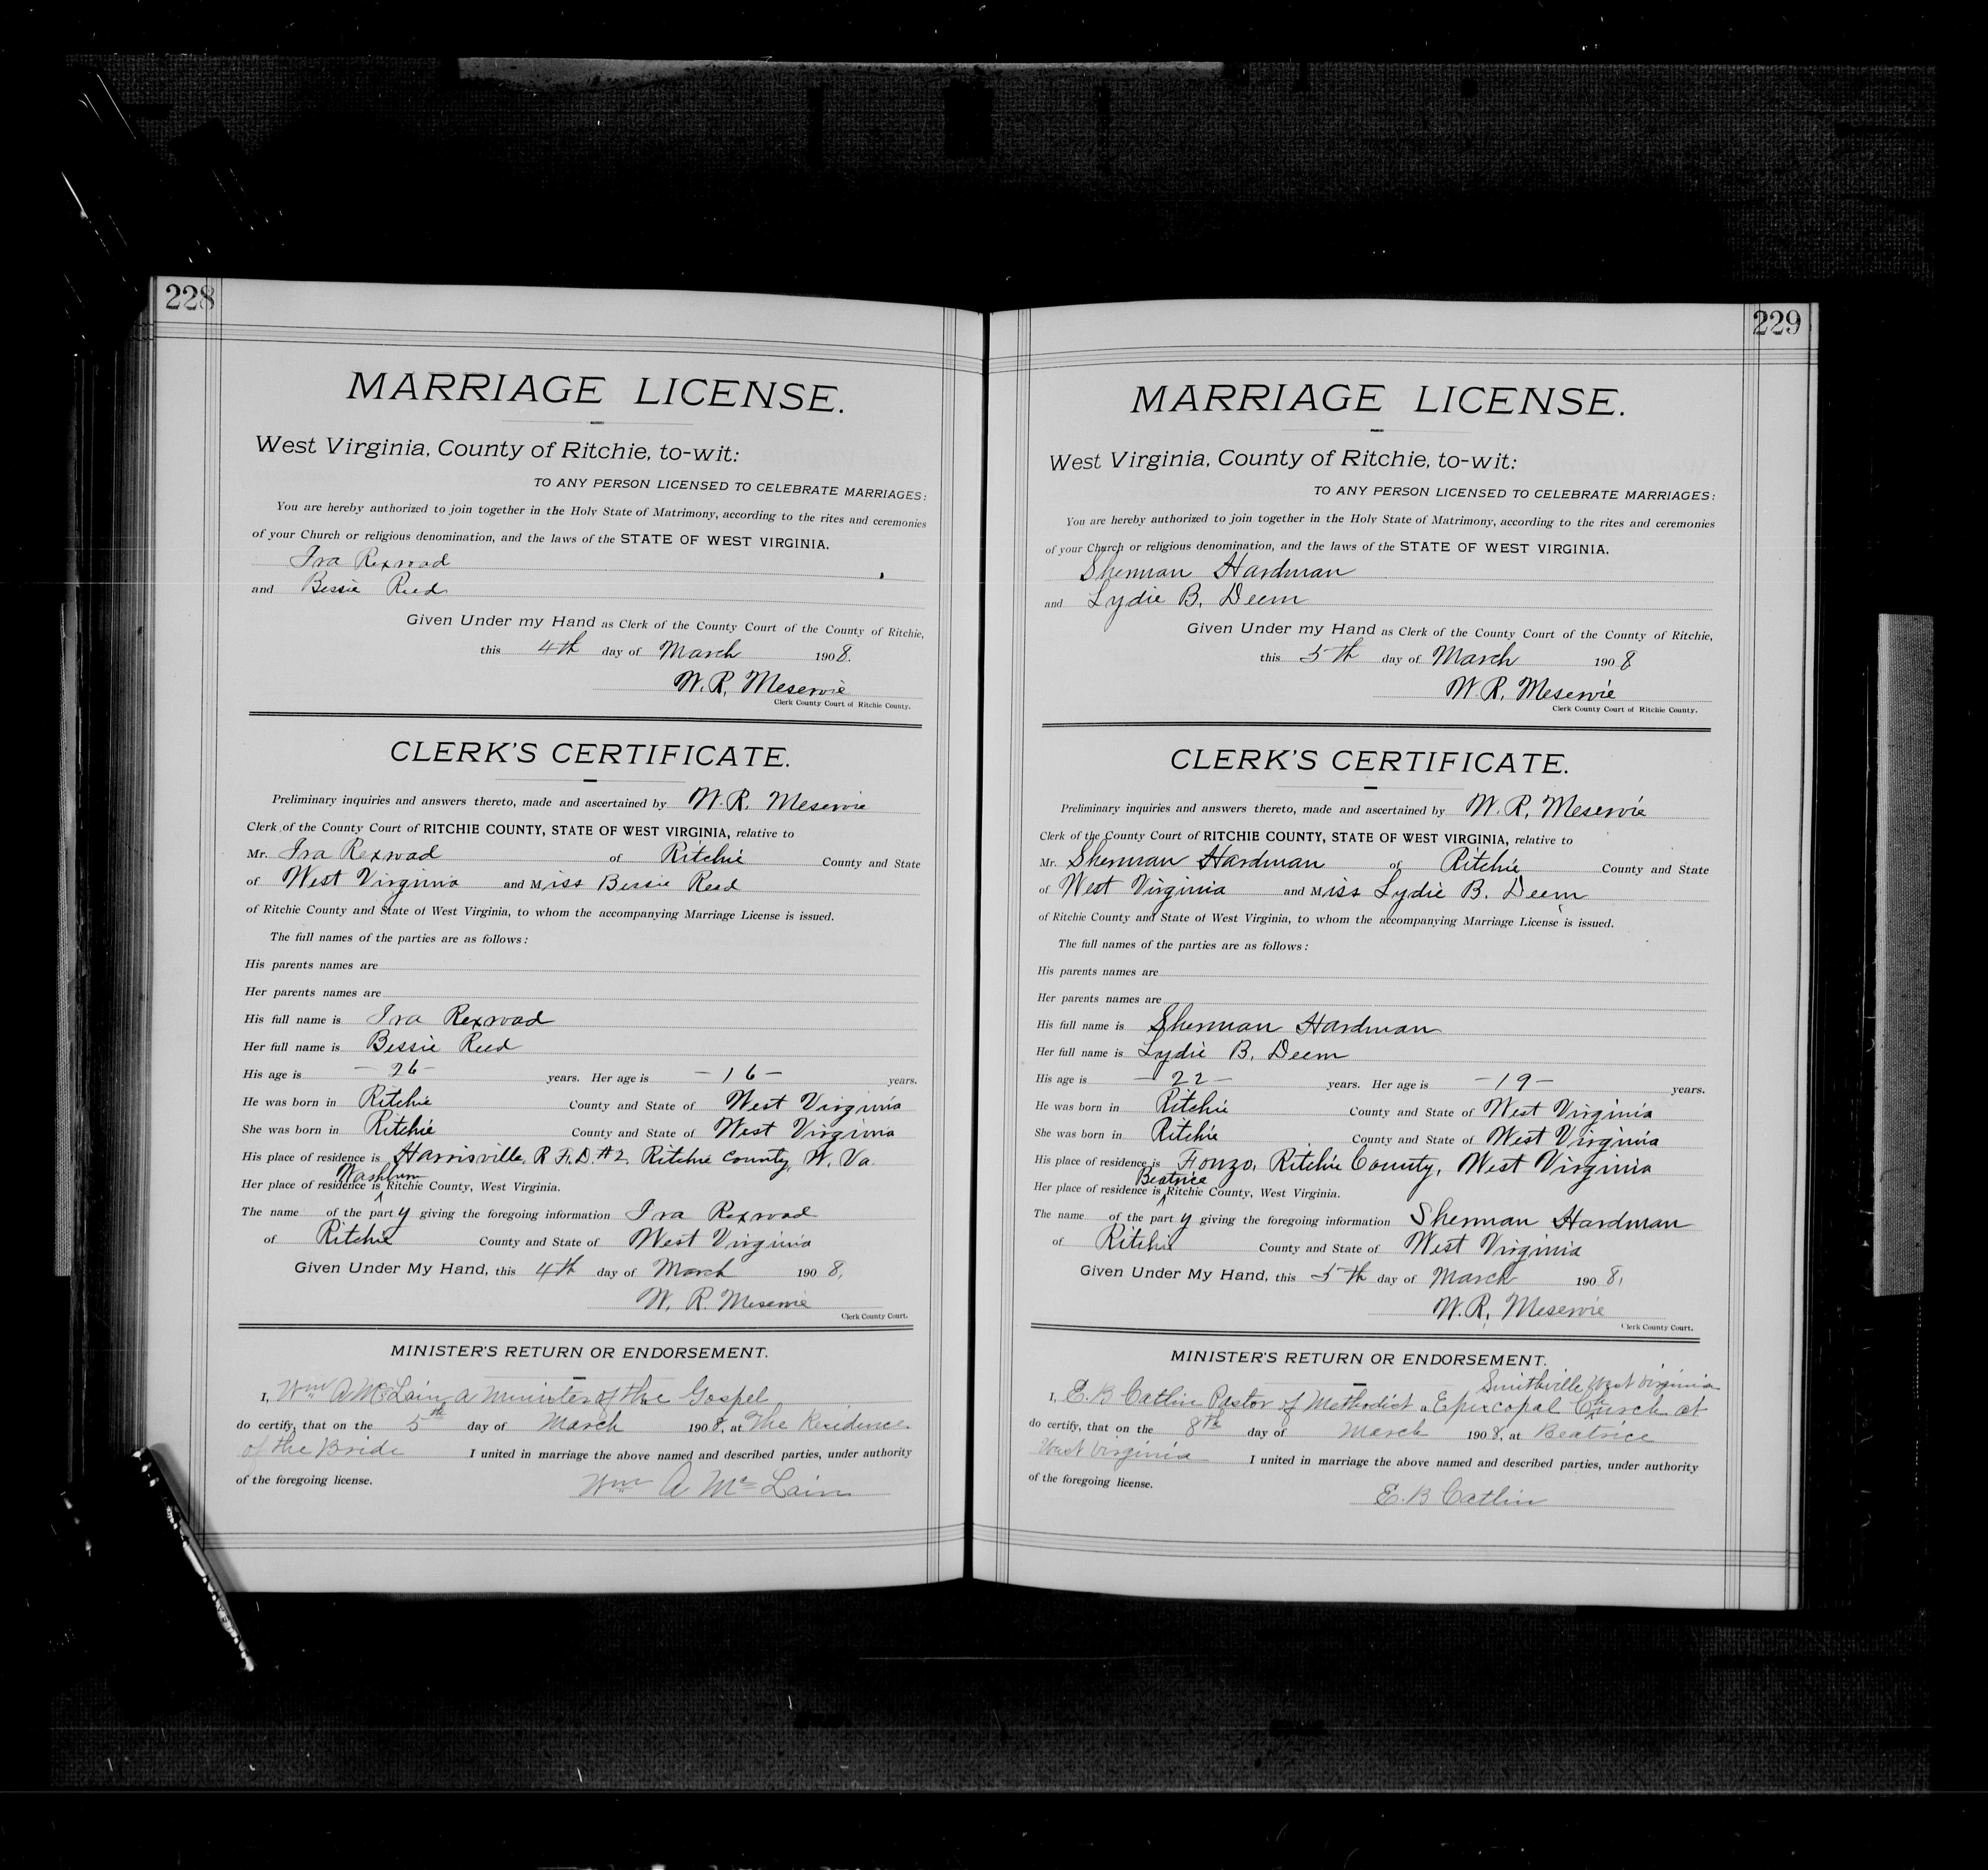 228
MARRIAGE LICENSE.
West Virginia, County of Ritchie, to-wit:
TO ANY PERSON LICENSED TO CELEBRATE MARRIAGES:
You are hereby authorized to join together in the Holy State of Matrimony, according to the rites and ceremonies
of your Church or religious denomination, and the laws of the STATE OF WEST VIRGINIA.
Ira Rexroad
and Bessie Reed
Given Under my Hand as Clerk of the County Court of the County of Ritchie,
this 4th day of March 1908.
W. R. Meservie
Clerk County Court of Ritchie County.
CLERK'S CERTIFICATE.
Preliminary inquiries and answers thereto, made and ascertained by W. R. Meservie
Clerk of the County Court of RITCHIE COUNTY, STATE OF WEST VIRGINIA, relative to
Mr. Ira Rexroad of Ritchie County and State
of West Virginia and Miss Bessie Reed
of Ritchie County and State of West Virginia, to whom the accompanying Marriage License is issued.
The full names of the parties are as follows:
His parents names are
Her parents names are
His full name is Ira Rexroad
Her full name is Bessie Reed
His age is -26- years. Her age is -16- years.
He was born in Ritchie County and State of West Virginia
She was born in Ritchie County and State of West Virginia
His place of residence is Harrisville, R.F.D. #2, Ritchie County, W. Va.
Washburn
Her place of residence is Ritchie County, West Virginia.
The name of the party giving the foregoing information Ira Rexroad
of Ritchie County and State of West Virginia
Given Under My Hand, this 4th day of March 1908,
W. R. Meservie
Clerk County Court.
MINISTER'S RETURN OR ENDORSEMENT.
I, Wm A McLain a minister of the Gospel
do certify, that on the 5th day of March 1908, at The Residence
of the Bride I united in marriage the above named and described parties, under authority
of the foregoing license.
Wm A McLain
229
MARRIAGE LICENSE.
West Virginia, County of Ritchie, to-wit:
TO ANY PERSON LICENSED TO CELEBRATE MARRIAGES:
You are hereby authorized to join together in the Holy State of Matrimony, according to the rites and ceremonies
of your Church or religious denomination, and the laws of the STATE OF WEST VIRGINIA.
Sherman Hardman
and Lydie B. Deem
Given Under my Hand as Clerk of the County Court of the County of Ritchie,
this 5th day of March 1908
W. R. Meservie
Clerk County Court of Ritchie County.
CLERK'S CERTIFICATE.
Preliminary inquiries and answers thereto, made and ascertained by W. R. Meservie
Clerk of the County Court of RITCHIE COUNTY, STATE OF WEST VIRGINIA, relative to
Mr. Sherman Hardman of Ritchie County and State
of West Virginia and Miss Lydie B. Deem
of Ritchie County and State of West Virginia, to whom the accompanying Marriage License is issued.
The full names of the parties are as follows:
His parents names are
Her parents names are
His full name is Sherman Hardman
Her full name is Lydie B. Deem
His age is -22- years. Her age is -19- years.
He was born in Ritchie County and State of West Virginia
She was born in Ritchie County and State of West Virginia
His place of residence is Fonzo, Ritchie County, West Virginia
Beatrice
Her place of residence is Ritchie County, West Virginia.
The name of the party giving the foregoing information Sherman Hardman
of Ritchie County and State of West Virginia
Given Under My Hand, this 5th day of March 1908,
W. R. Meservie
Clerk County Court.
MINISTER'S RETURN OR ENDORSEMENT.
Smithville West Virginia
I, E. B Catlin Pastor of Methodist Episcopal Church at
do certify, that on the 8th day of March 1908, at Beatrice
West Virginia I united in marriage the above named and described parties, under authority
of the foregoing license.
E. B Catlin